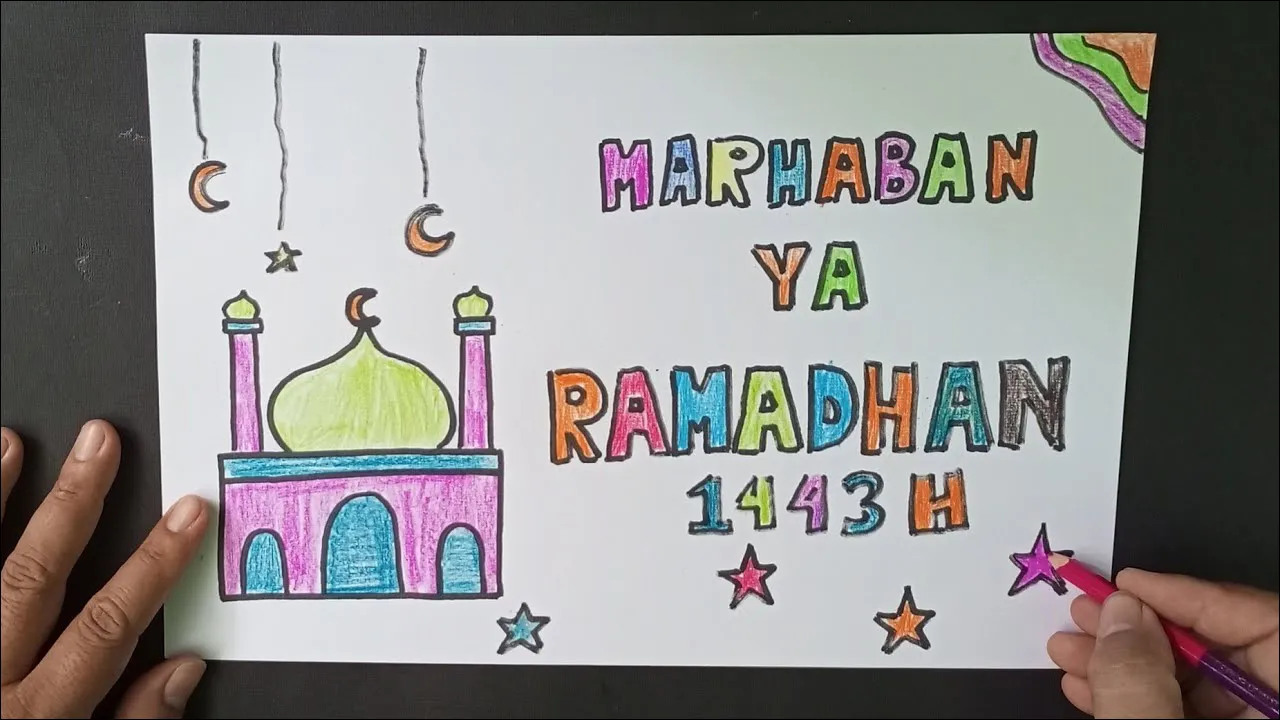 MARHABAN
YA
RAMADHAN
1443 H